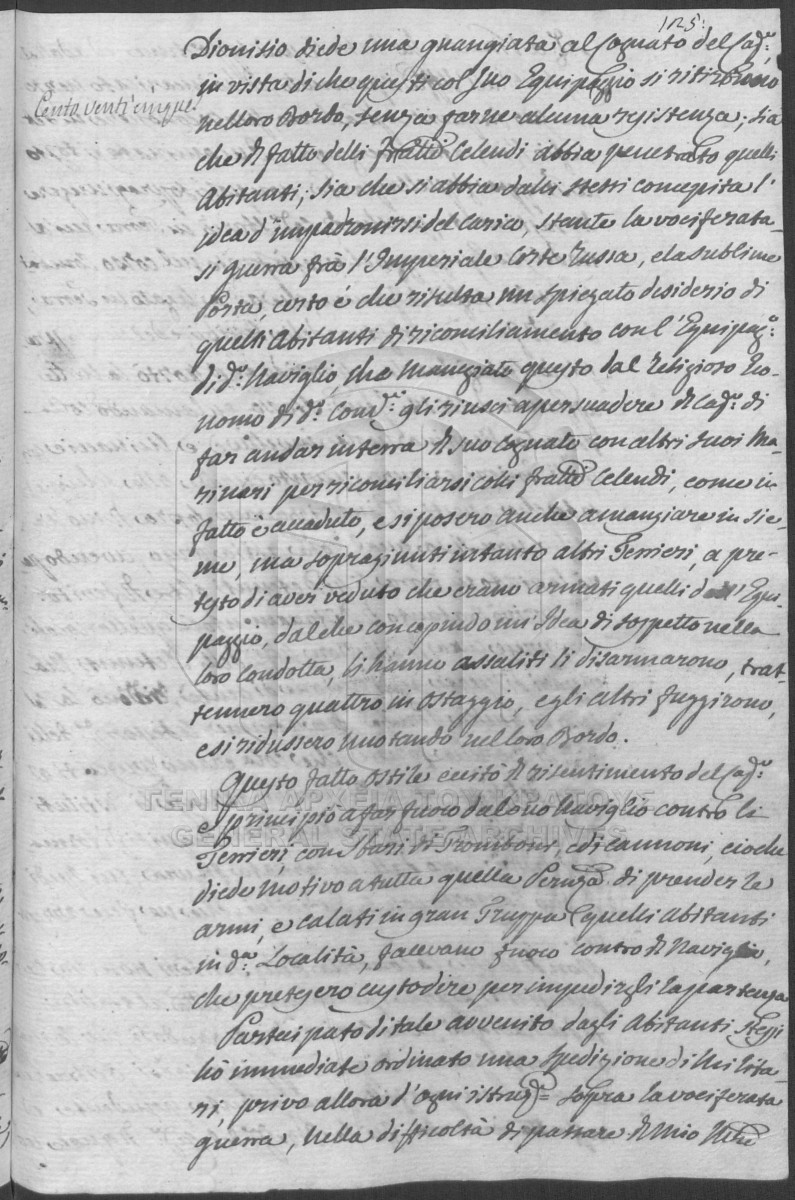 125:
Cento venti cinque
Dionisio diede una guangiata al Cognato del Cap:,
in vista di che questi col suo Equipaggio si ritirorono
nel loro Bordo, senza farne alcuna resistenza; sia
che il fatto delli fratelli Celendi abbia penetrato quelli
Abitanti; sia che si abbia dalli stessi concepita l'
idea d'impadronirsi del Carico, stante la vociferata-
si guerra frà l'Imperiale Corte Russa, e la sublime
Porta, certo é che risulta un spiegato desiderio di
quelli Abitanti di riconciliamento con l'Equipag:
di d: Naviglio, che maneggiato questo dal Religioso
nomo di d: gli riusci a persuadere il Cap: di
far andar in terra il suo Cognato con altri suoi Ma-
rinari per riconciliarsi colli fratelli Celendi, come in
fatto è accaduto, e si posero anche a mangiare insie-
me, ma sopragiunti intanto altri Terrieri, a pre-
testo di aver veduto che erano armati quelli dell'Equi-
paggio, dal che concependo un'Idea di sospetto nella
loro condotta, li hanno assaliti li disarmarono, trat-
tennero quattro in ostaggio, e gli altri fuggirono,
e si ridussero nuotando nel loro Bordo.
Questo fatto ostile eccitò il risentimento del Cap:
e principiò a far fuoco dal suo Naviglio contro li
Terrieri, con Sbari di Tromboni, e di cannoni, cioche
diede motivo a tutta quella di prender le
armi, e calati in gran Truppa quelli abitanti
in d: Località, facevano fuoco contro il Naviglio,
che pretesero custodire per impedirgli la partenza
Partecipato di tale avvenito dagli Abitanti stessi
hò immediate ordinato una spedizione di Milita-
ri, privo allora d'ogni sopra la vociferata
guerra, nella difficoltà di passare il mio
ΓΕΝΙΚΑ ΑΡΧΕΙΑ ΤΟΥ ΚΡΑΤΟΥΣ
GENERAL STATE ARCHIVES